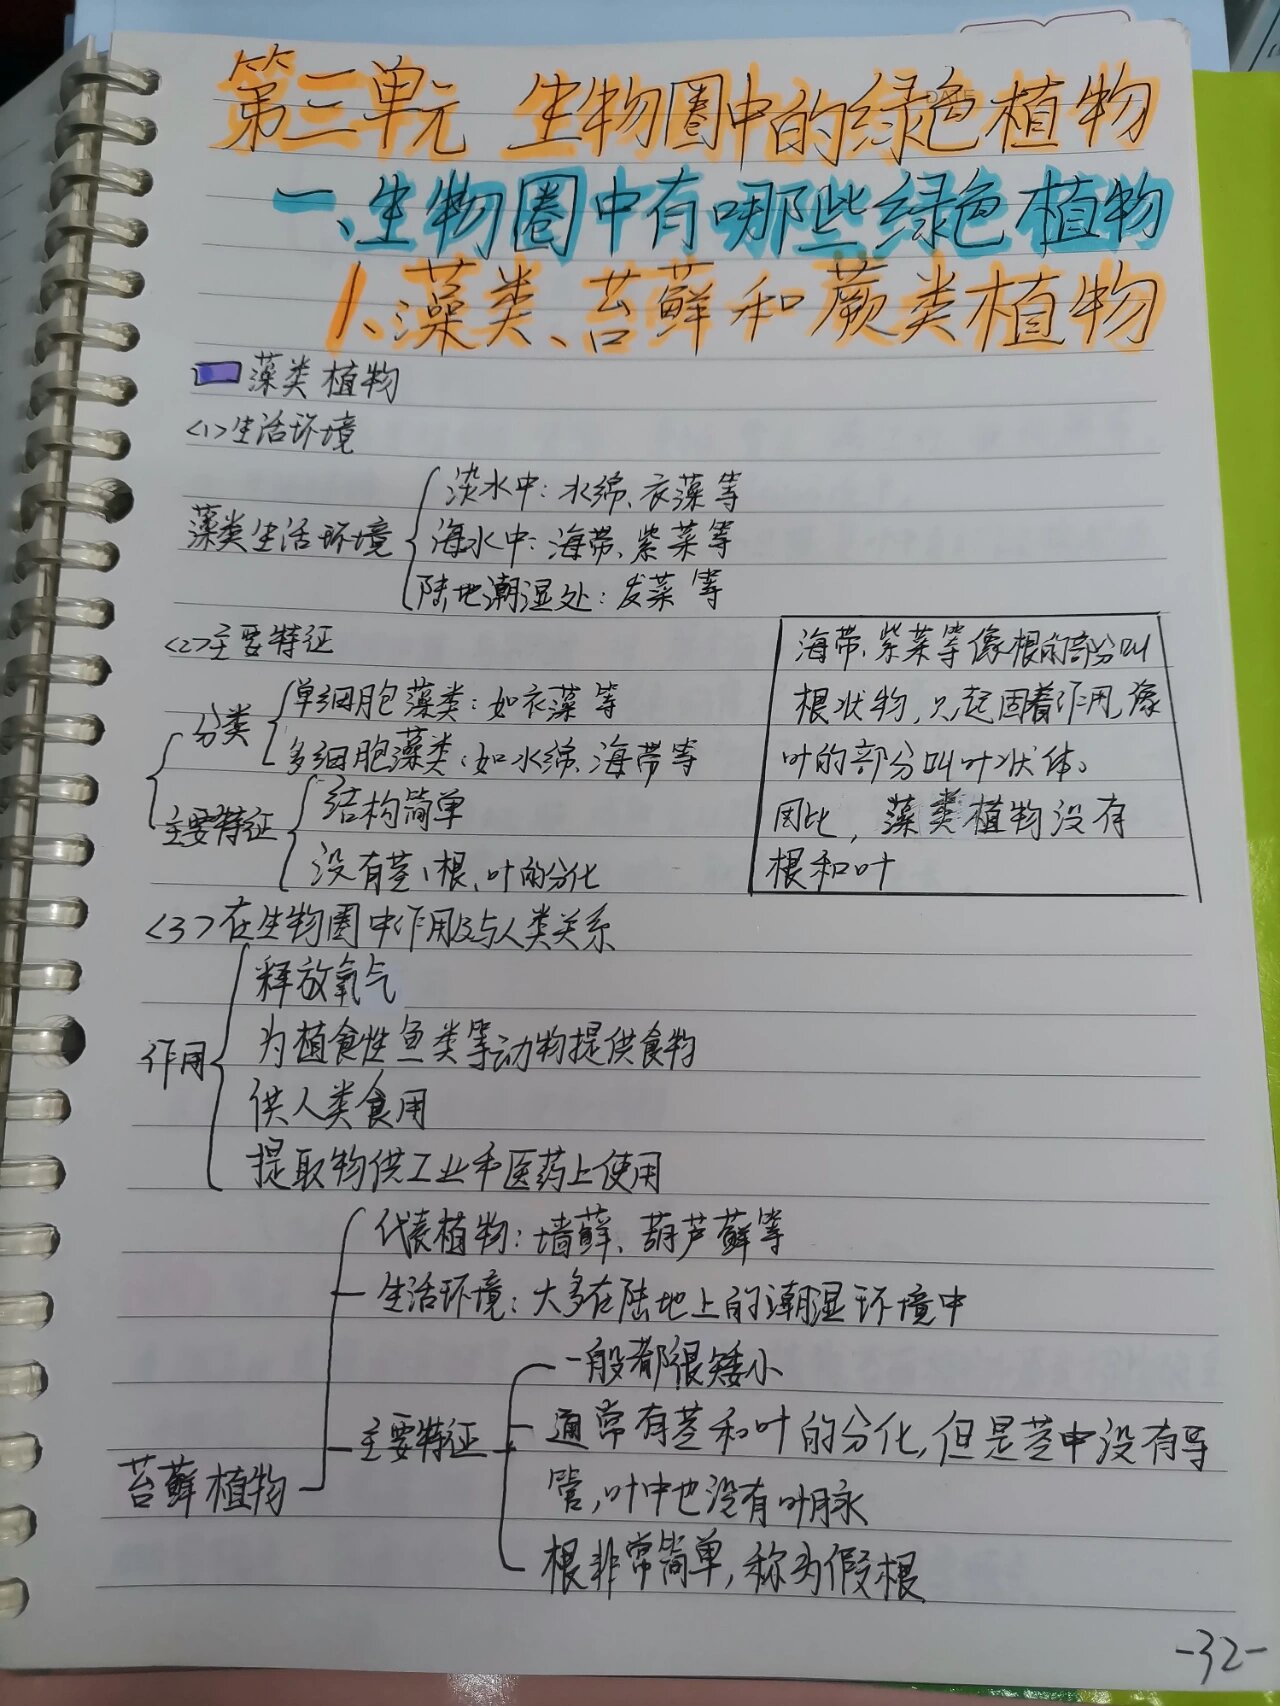 第三单元 生物圈中的绿色植物
一、生物圈中有哪些绿色植物
1、藻类、苔藓和蕨类植物
藻类植物
<1>生活环境
藻类生活环境
淡水中:水绵、衣藻等
海水中:海带、紫菜等
陆地潮湿处:发菜等
<2>主要特征
分类
单细胞藻类:如衣藻等
多细胞藻类:如水绵、海带等
主要特征
结构简单
没有茎、根、叶的分化
海带、紫菜等像根的部分叫
根状物,只起固着作用,像
叶的部分叫叶状体。
因此,藻类植物没有
根和叶
<3>在生物圈中作用及与人类关系
作用
释放氧气
为植食性鱼类等动物提供食物
供人类食用
提取物供工业和医药上使用
苔藓植物
代表植物:墙藓、葫芦藓等
生活环境:大多在陆地上的潮湿环境中
主要特征
一般都很矮小
通常有茎和叶的分化,但是茎中没有导
管,叶中也没有叶脉
根非常简单,称为假根
-32-